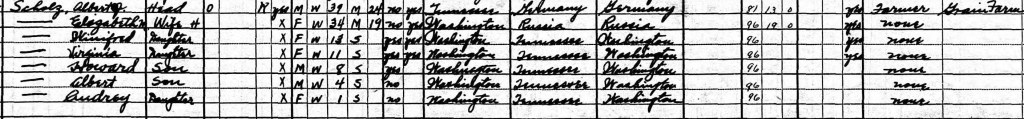 Scholz, Albert Head O R yes M W 39 M 24 no yes Tennessee Germany Germany 81 13 0 yes Farmer Grain Farm
— Elizabeth Wife H X F W 34 M 19 no yes Washington Russia Russia 96 19 0 yes none
— Winifred Daughter X F W 12 S yes yes Washington Tennessee Washington 96 yes none
— Virginia Daughter X F W 11 S yes yes Washington Tennessee Washington 96 yes none
— Howard Son X M W 8 S yes Washington Tennessee Washington 96 none
— Albert Son X M W 4 S no Washington Tennessee Washington 96 none
— Audrey Daughter X F W 1 S no Washington Tennessee Washington 96 none